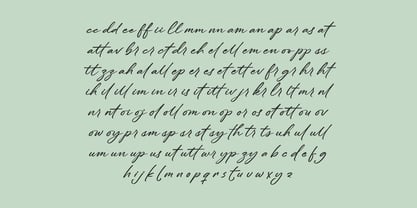 cc dd ee ff ii ll mm nn am an ap ar as at
att av br cr ct dr ch el ell em en oo pp ss
tt zz ah al all ep er es et ett ev fr gr hr ht
ih il ill im in ir is it itt iv jr kr lr lt mr nl
nr nt oi oj ol oll om on op or os ot ott ou ov
ow oy pr sm sp sr st sy th tr ts uh ul ull
um un up us ut utt wr yp zy a b c d e f g
h i j k l m n o p q r s t u v w x y z